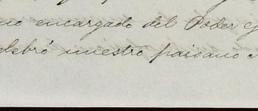 mo encargado del Poder Ej
lebró nuestro paisano